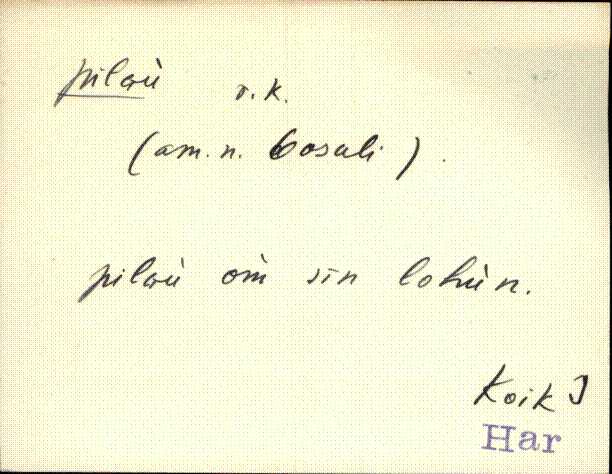 pilaù r. k.
(am. n. Cosali).
pilaù om̀ sīn lohùn.
Koik J
Har